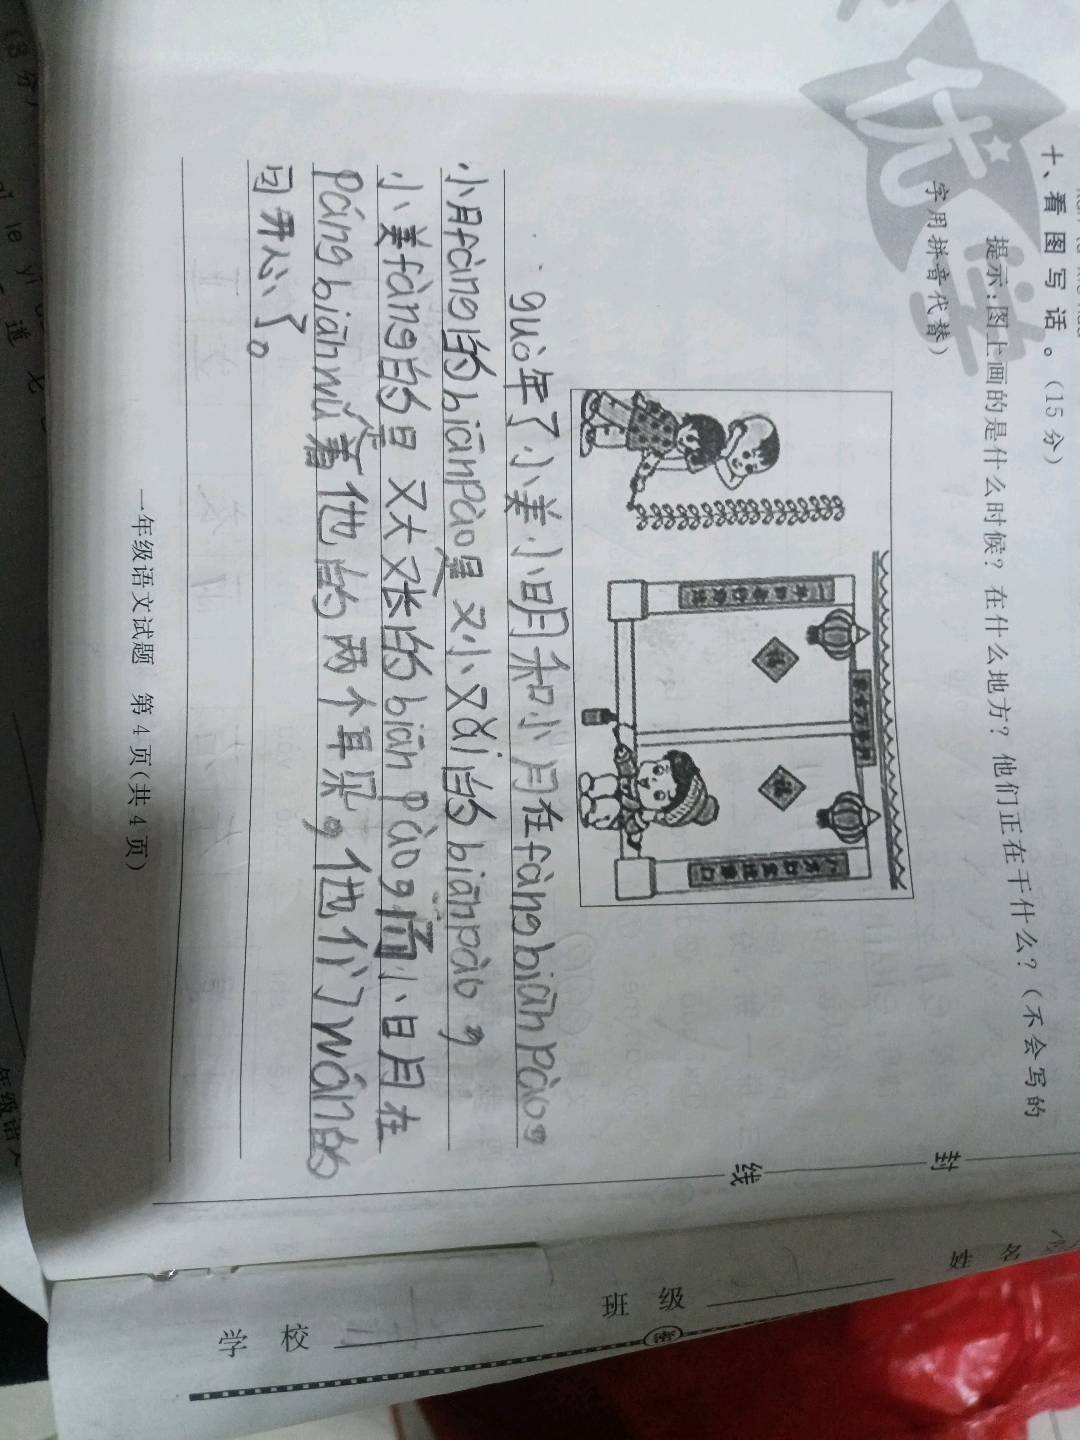 十、看图写话。(15分)
提示:图上画的是什么时候?在什么地方?他们正在干什么?(不会写的
字用拼音代替)
guò年了小美小明和小月在fàngbiānpào,
小月fàng的biānpào是又小又xì的biānpào,
小美fàng的是又大又长的biānpào,而小明在
pángbiānwǔ着他的两个耳朵,他们wán的
可开心了。
一年级语文试题 第4页(共4页)
封
线
密
姓名
班级
学校
优